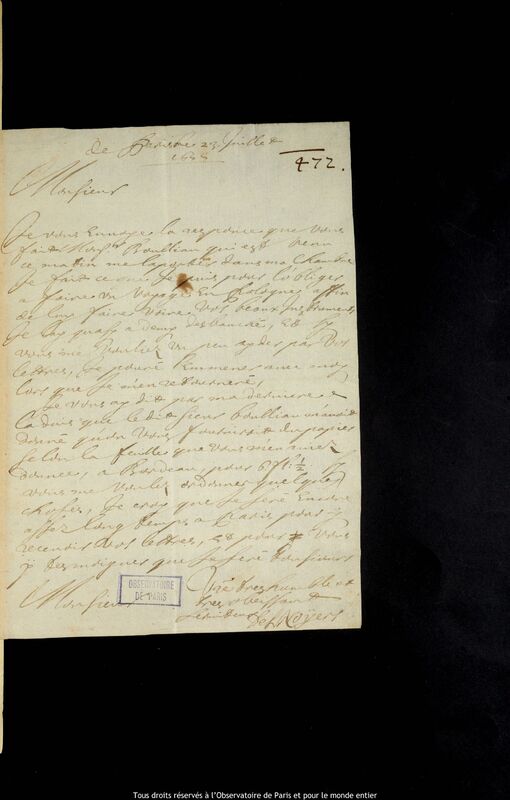 De Paris ce 23 Juillet
1658
472.
Monsieur
Je vous Envoye la responce que vous
fait Monsr Boulliau qui est venu
ce matin me l'aporter dans ma chambre
Je fait ce que Je puis pour l'obliger
a faire un voyage En Pologne affin
de luy faire voire vos beaux Instruments
Je l'ay quasy a demy desbauché, Et sy
vous me voulez un peu ayder par vos
lettres, Je pouré l'emmener avec moy
lors que Je m'en retourneré,
Je vous ay dit par ma derniere
que ledit sieur Boulliau
donné qu'on vous fournisse du papier
selon la feuille que vous m'en aviez
donnee, a Bordeau, pour 6 fl. 1/2 sy
vous me voulez ordonner quelques
choses, Je croy que Je seré Encore
assez long temps a Paris pour y
recevoir vos lettres, Et pour vous
y tesmoigner que Je seré tousiours
Monsieur
Vre tres humble et
tres obeissant
serviteur
Des Noÿers
OBSERVATOIRE
DE PARIS
Tous droits réservés à l'Observatoire de Paris et pour le monde entier